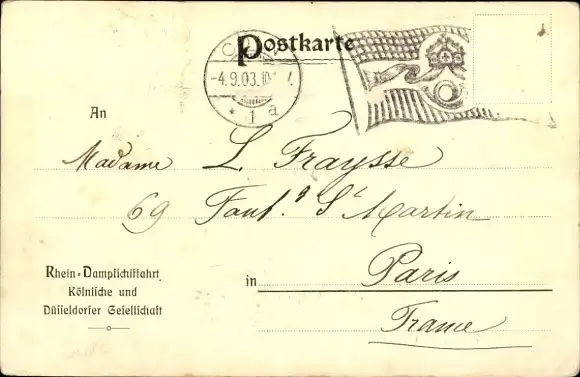 Postkarte
-4.9.03.10
1 a
An
Madame L. Fraysse
69 Faub.g St Martin
Rhein-Dampfschiffahrt
Kölnische und
Düsseldorfer Gesellschaft
in Paris
France